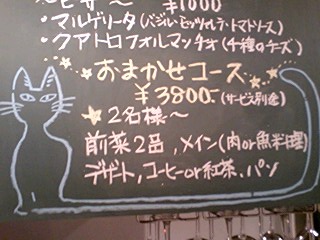 ・ピザ〜 ¥1000
・マルゲリータ(バジル・モッツァレラ・トマトソース)
・クアトロフォルマッヂオ(4種のチーズ)
おまかせコース
¥3800-(サービス別途)
2名様〜
前菜2品,メイン(肉or魚料理)
デザート,コーヒーor紅茶,パン